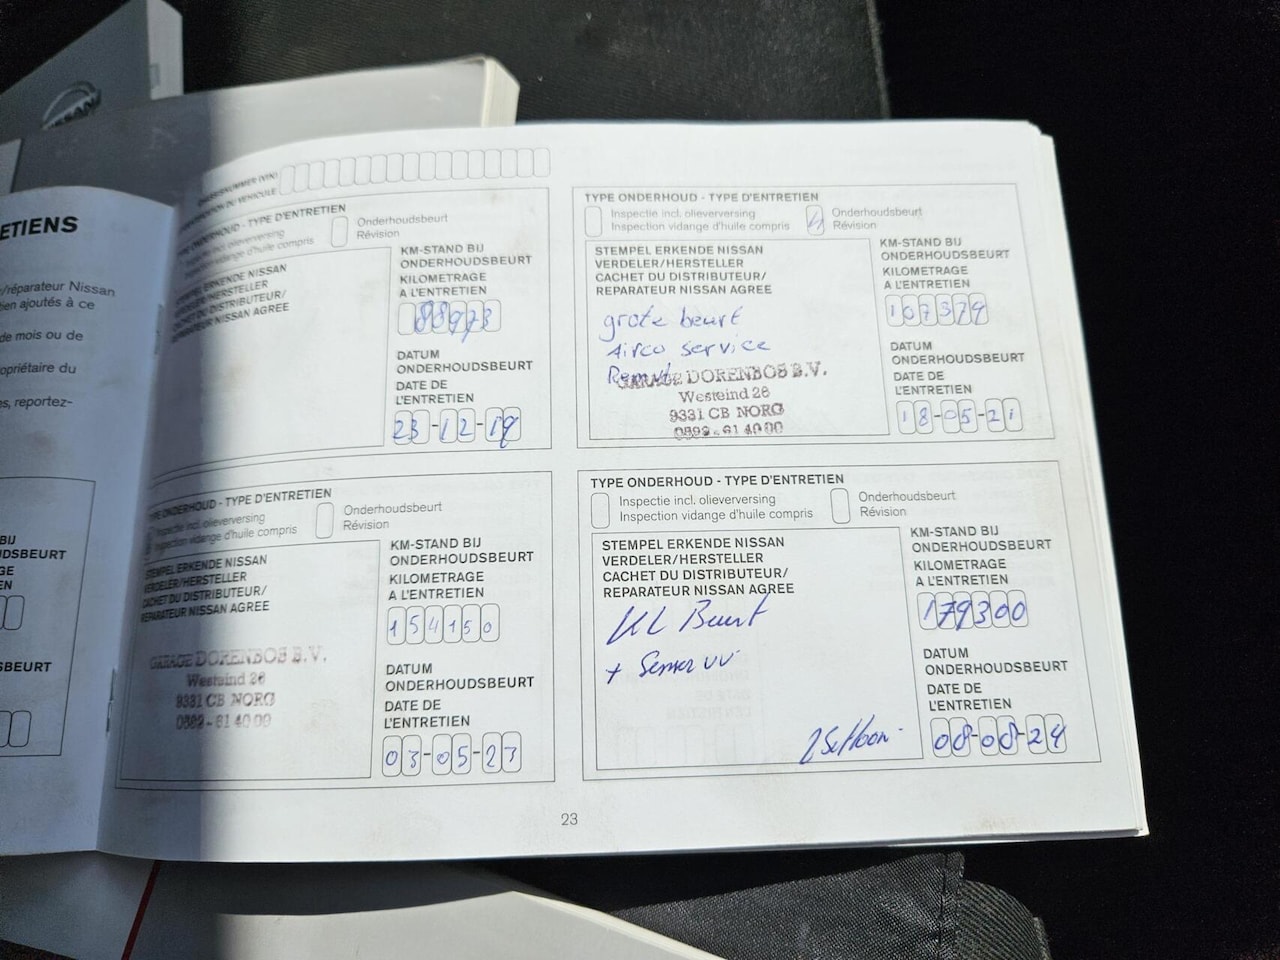 NISSAN
ETIENS
/réparateur Nissan
ien ajoutés à ce
de mois ou de
opriétaire du
es, reportez-
BIJ
DSBEURT
GE
EN
SBEURT
CHASSISNUMMER (VIN)
DU VEHICULE
TYPE ONDERHOUD - TYPE D'ENTRETIEN
incl. olieverversing
Inspection vidange d'huile compris
Onderhoudsbeurt
Révision
STEMPEL ERKENDE NISSAN
VERDELER/HERSTELLER
CACHET DU DISTRIBUTEUR/
REPARATEUR NISSAN AGREE
KM-STAND BIJ
ONDERHOUDSBEURT
KILOMETRAGE
A L'ENTRETIEN
88973
DATUM
ONDERHOUDSBEURT
DATE DE
L'ENTRETIEN
23-12-19
TYPE ONDERHOUD - TYPE D'ENTRETIEN
Inspectie incl. olieverversing
Inspection vidange d'huile compris
Onderhoudsbeurt
Révision
STEMPEL ERKENDE NISSAN
VERDELER/HERSTELLER
CACHET DU DISTRIBUTEUR/
REPARATEUR NISSAN AGREE
grote beurt
Airco service
GARAGE DORENBOS B.V.
Westeind 26
9331 CB NORG
0592-61 40 00
KM-STAND BIJ
ONDERHOUDSBEURT
KILOMETRAGE
A L'ENTRETIEN
107379
DATUM
ONDERHOUDSBEURT
DATE DE
L'ENTRETIEN
18-05-21
TYPE ONDERHOUD - TYPE D'ENTRETIEN
Inspectie incl. olieverversing
Inspection vidange d'huile compris
Onderhoudsbeurt
Révision
STEMPEL ERKENDE NISSAN
VERDELER/HERSTELLER
CACHET DU DISTRIBUTEUR/
REPARATEUR NISSAN AGREE
GARAGE DORENBOS B.V.
Westeind 26
9331 CB NORG
0592-61 40 00
KM-STAND BIJ
ONDERHOUDSBEURT
KILOMETRAGE
A L'ENTRETIEN
154150
DATUM
ONDERHOUDSBEURT
DATE DE
L'ENTRETIEN
03-05-23
TYPE ONDERHOUD - TYPE D'ENTRETIEN
Inspectie incl. olieverversing
Inspection vidange d'huile compris
Onderhoudsbeurt
Révision
STEMPEL ERKENDE NISSAN
VERDELER/HERSTELLER
CACHET DU DISTRIBUTEUR/
REPARATEUR NISSAN AGREE
KL Beurt
+ Sensor VV
KM-STAND BIJ
ONDERHOUDSBEURT
KILOMETRAGE
A L'ENTRETIEN
179300
DATUM
ONDERHOUDSBEURT
DATE DE
L'ENTRETIEN
08-08-24
23